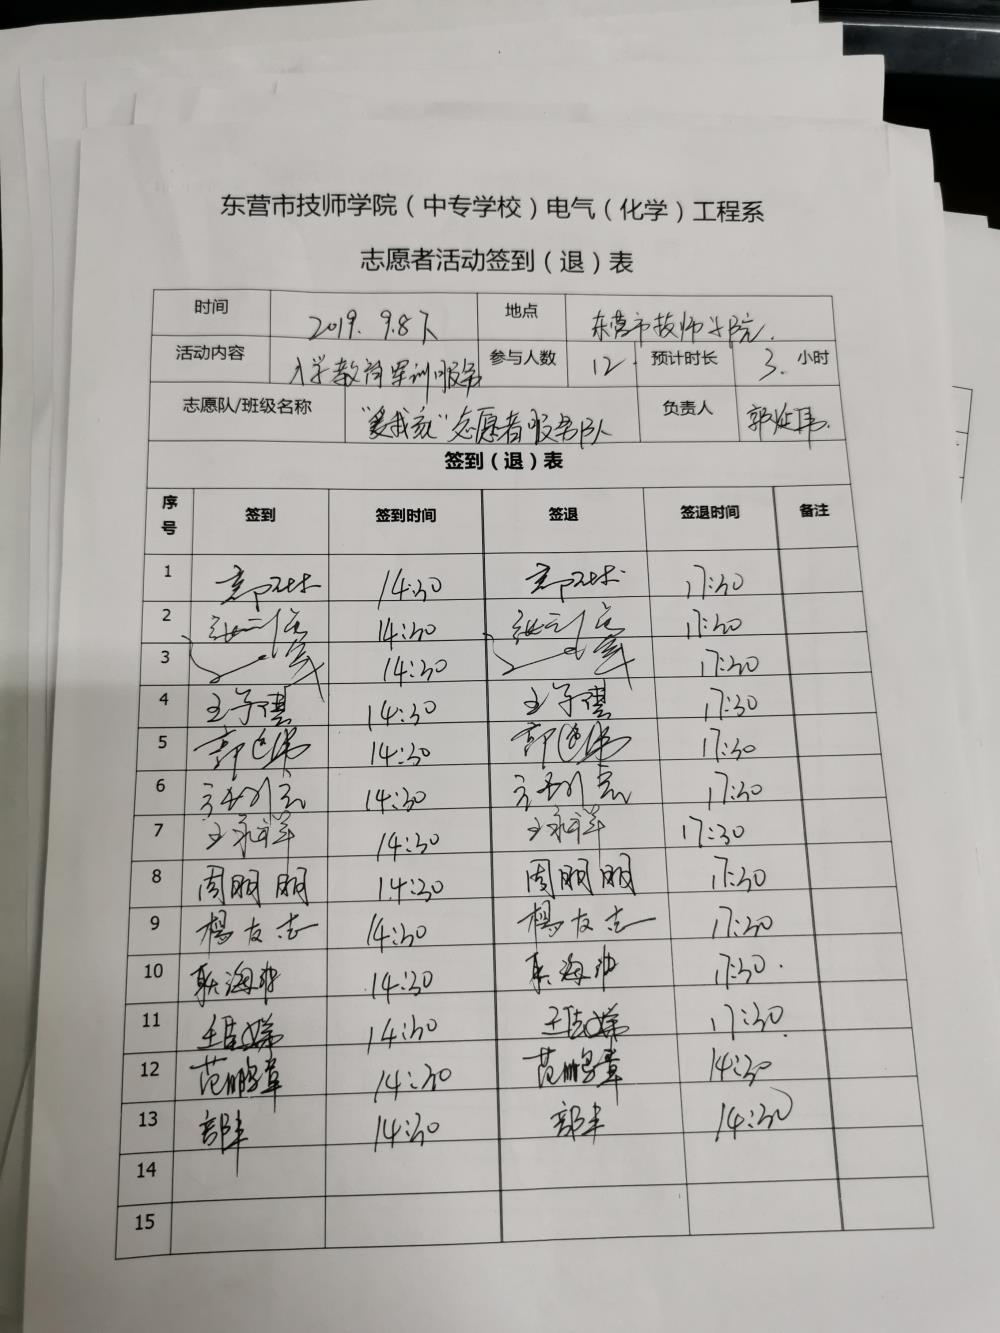 东营市技师学院（中专学校）电气（化学）工程系
志愿者活动签到（退）表
时间 2019.9.8下 地点 东营市技师学院.
活动内容 入学教育军训服务 参与人数 12. 预计时长 3. 小时
志愿队/班级名称 "爱我家"志愿者服务队 负责人 郭延玮.
签到（退）表
序号 签到 签到时间 签退 签退时间 备注
1 14:30 17:30
2 14:30 17:30
3 14:30 17:30
4 王子琪 14:30 王子琪 17:30
5 14:30 17:30
6 14:30 17:30
7 王永祥 14:30 王永祥 17:30
8 周朋朋 14:30 周朋朋 17:30
9 杨友志 14:30 杨友志 17:30
10 14:30 17:30.
11 14:30 17:30
12 范鹏章 14:30 范鹏章 14:30
13 14:30 14:30
14
15